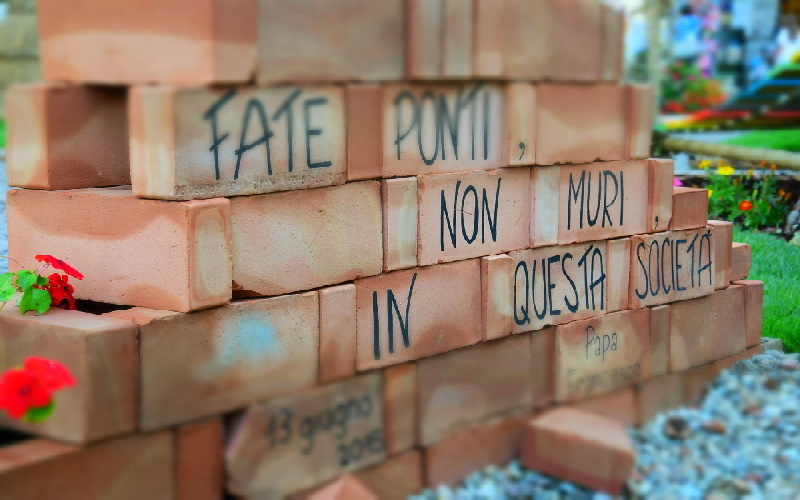 FATE PONTI,
NON MURI,
IN QUESTA SOCIETÀ
Papa
Francesco
13 giugno
2015